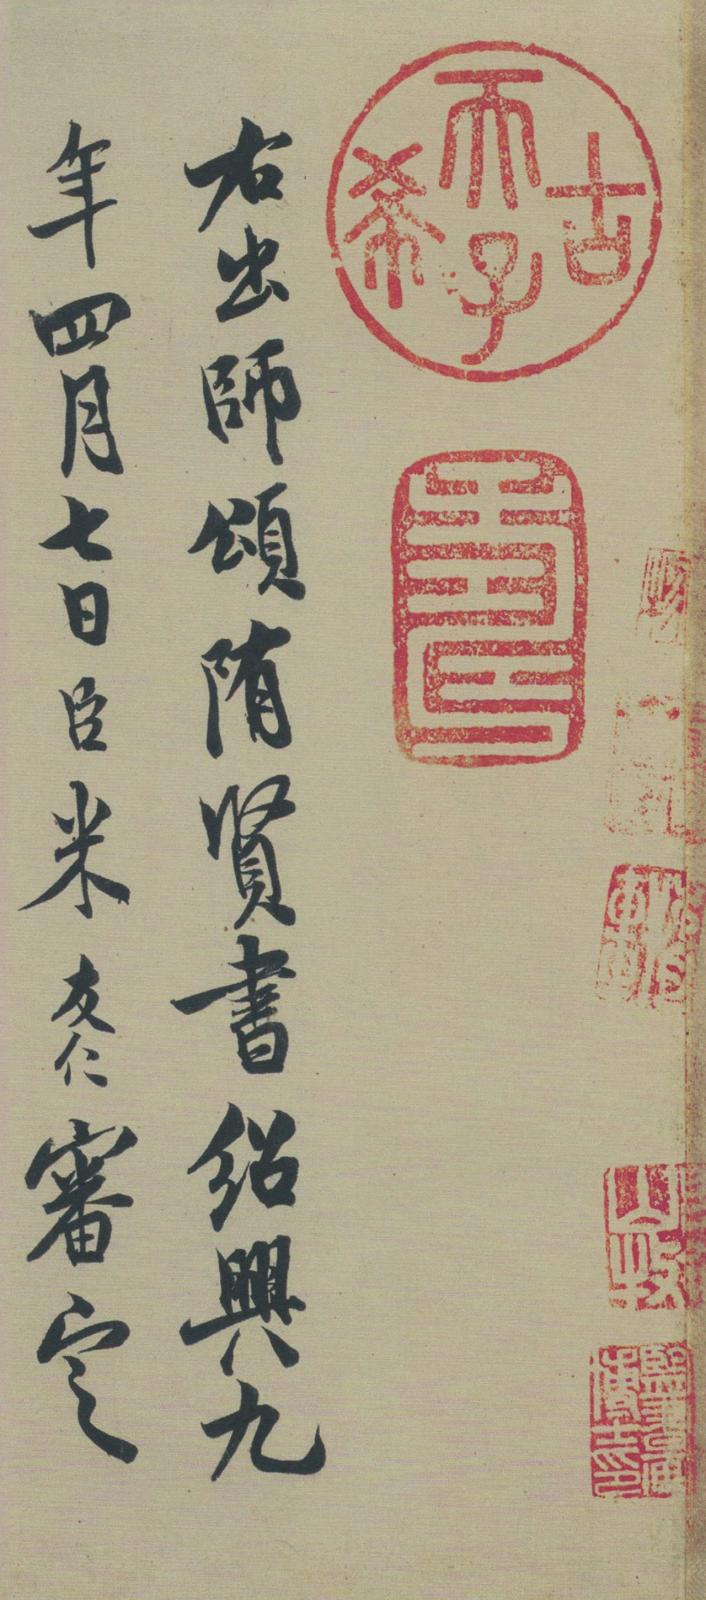 古希天子
壽
右出師頌隋賢書紹興九
年四月七日臣米友仁審定